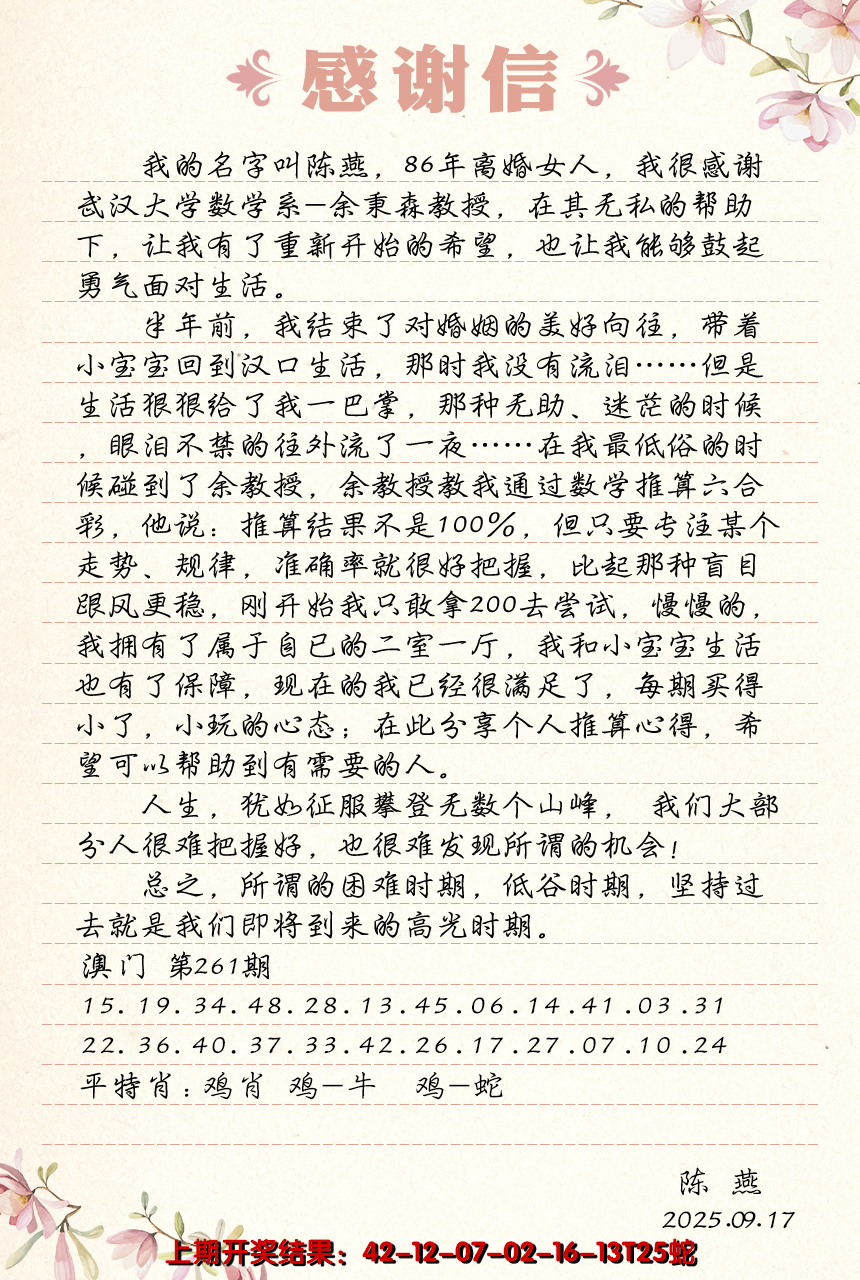 感谢信
我的名字叫陈燕，86年离婚女人，我很感谢
武汉大学数学系—余秉森教授，在其无私的帮助
下，让我有了重新开始的希望，也让我能够鼓起
勇气面对生活。
半年前，我结束了对婚姻的美好向往，带着
小宝宝回到汉口生活，那时我没有流泪……但是
生活狠狠给了我一巴掌，那种无助、迷茫的时候
，眼泪不禁的往外流了一夜……在我最低俗的时
候碰到了余教授，余教授教我通过数学推算六合
彩，他说：推算结果不是100%，但只要专注某个
走势、规律，准确率就很好把握，比起那种盲目
跟风更稳，刚开始我只敢拿200去尝试，慢慢的，
我拥有了属于自已的二室一厅，我和小宝宝生活
也有了保障，现在的我已经很满足了，每期买得
小了，小玩的心态；在此分享个人推算心得，希
望可以帮助到有需要的人。
人生，犹如征服攀登无数个山峰， 我们大部
分人很难把握好，也很难发现所谓的机会！
总之，所谓的困难时期，低谷时期，坚持过
去就是我们即将到来的高光时期。
澳门 第261期
15.19.34.48.28.13.45.06.14.41.03.31
22.36.40.37.33.42.26.17.27.07.10.24
平特肖：鸡肖 鸡—牛 鸡—蛇
陈 燕
2025.09.17
上期开奖结果：42—12—07—02—16—13T25蛇